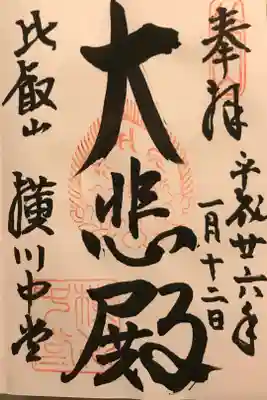 奉拝
平成廿六年
一月十二日
大悲殿
比叡山 横川中堂